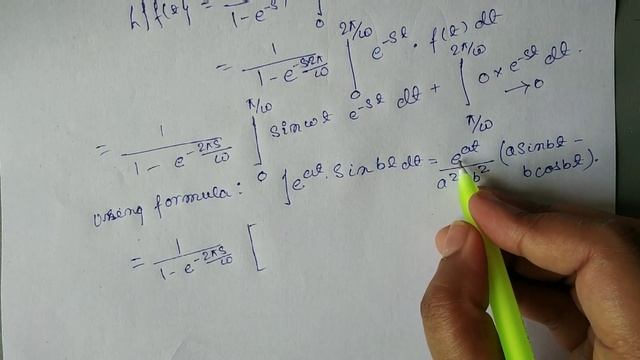 L{f(t)} = 1/(1 - e^-s ∫0
= 1/(1 - e^-s2π/ω) ∫0^2π/ω e^-st . f(t) dt
= 1/(1 - e^-2πs/ω) ∫0^π/ω sinωt e^-st dt + ∫π/ω^2π/ω 0 × e^-st dt. → 0
Using formula: ∫e^at . sinbt dt = e^at/(a² b²) (asinbt - bcosbt).
= 1/(1 - e^-2πs/ω) [